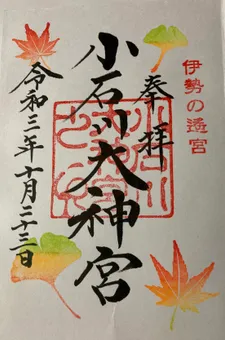 伊勢の遙宮
奉拝
小石川大神宮
令和三年十月二十三日